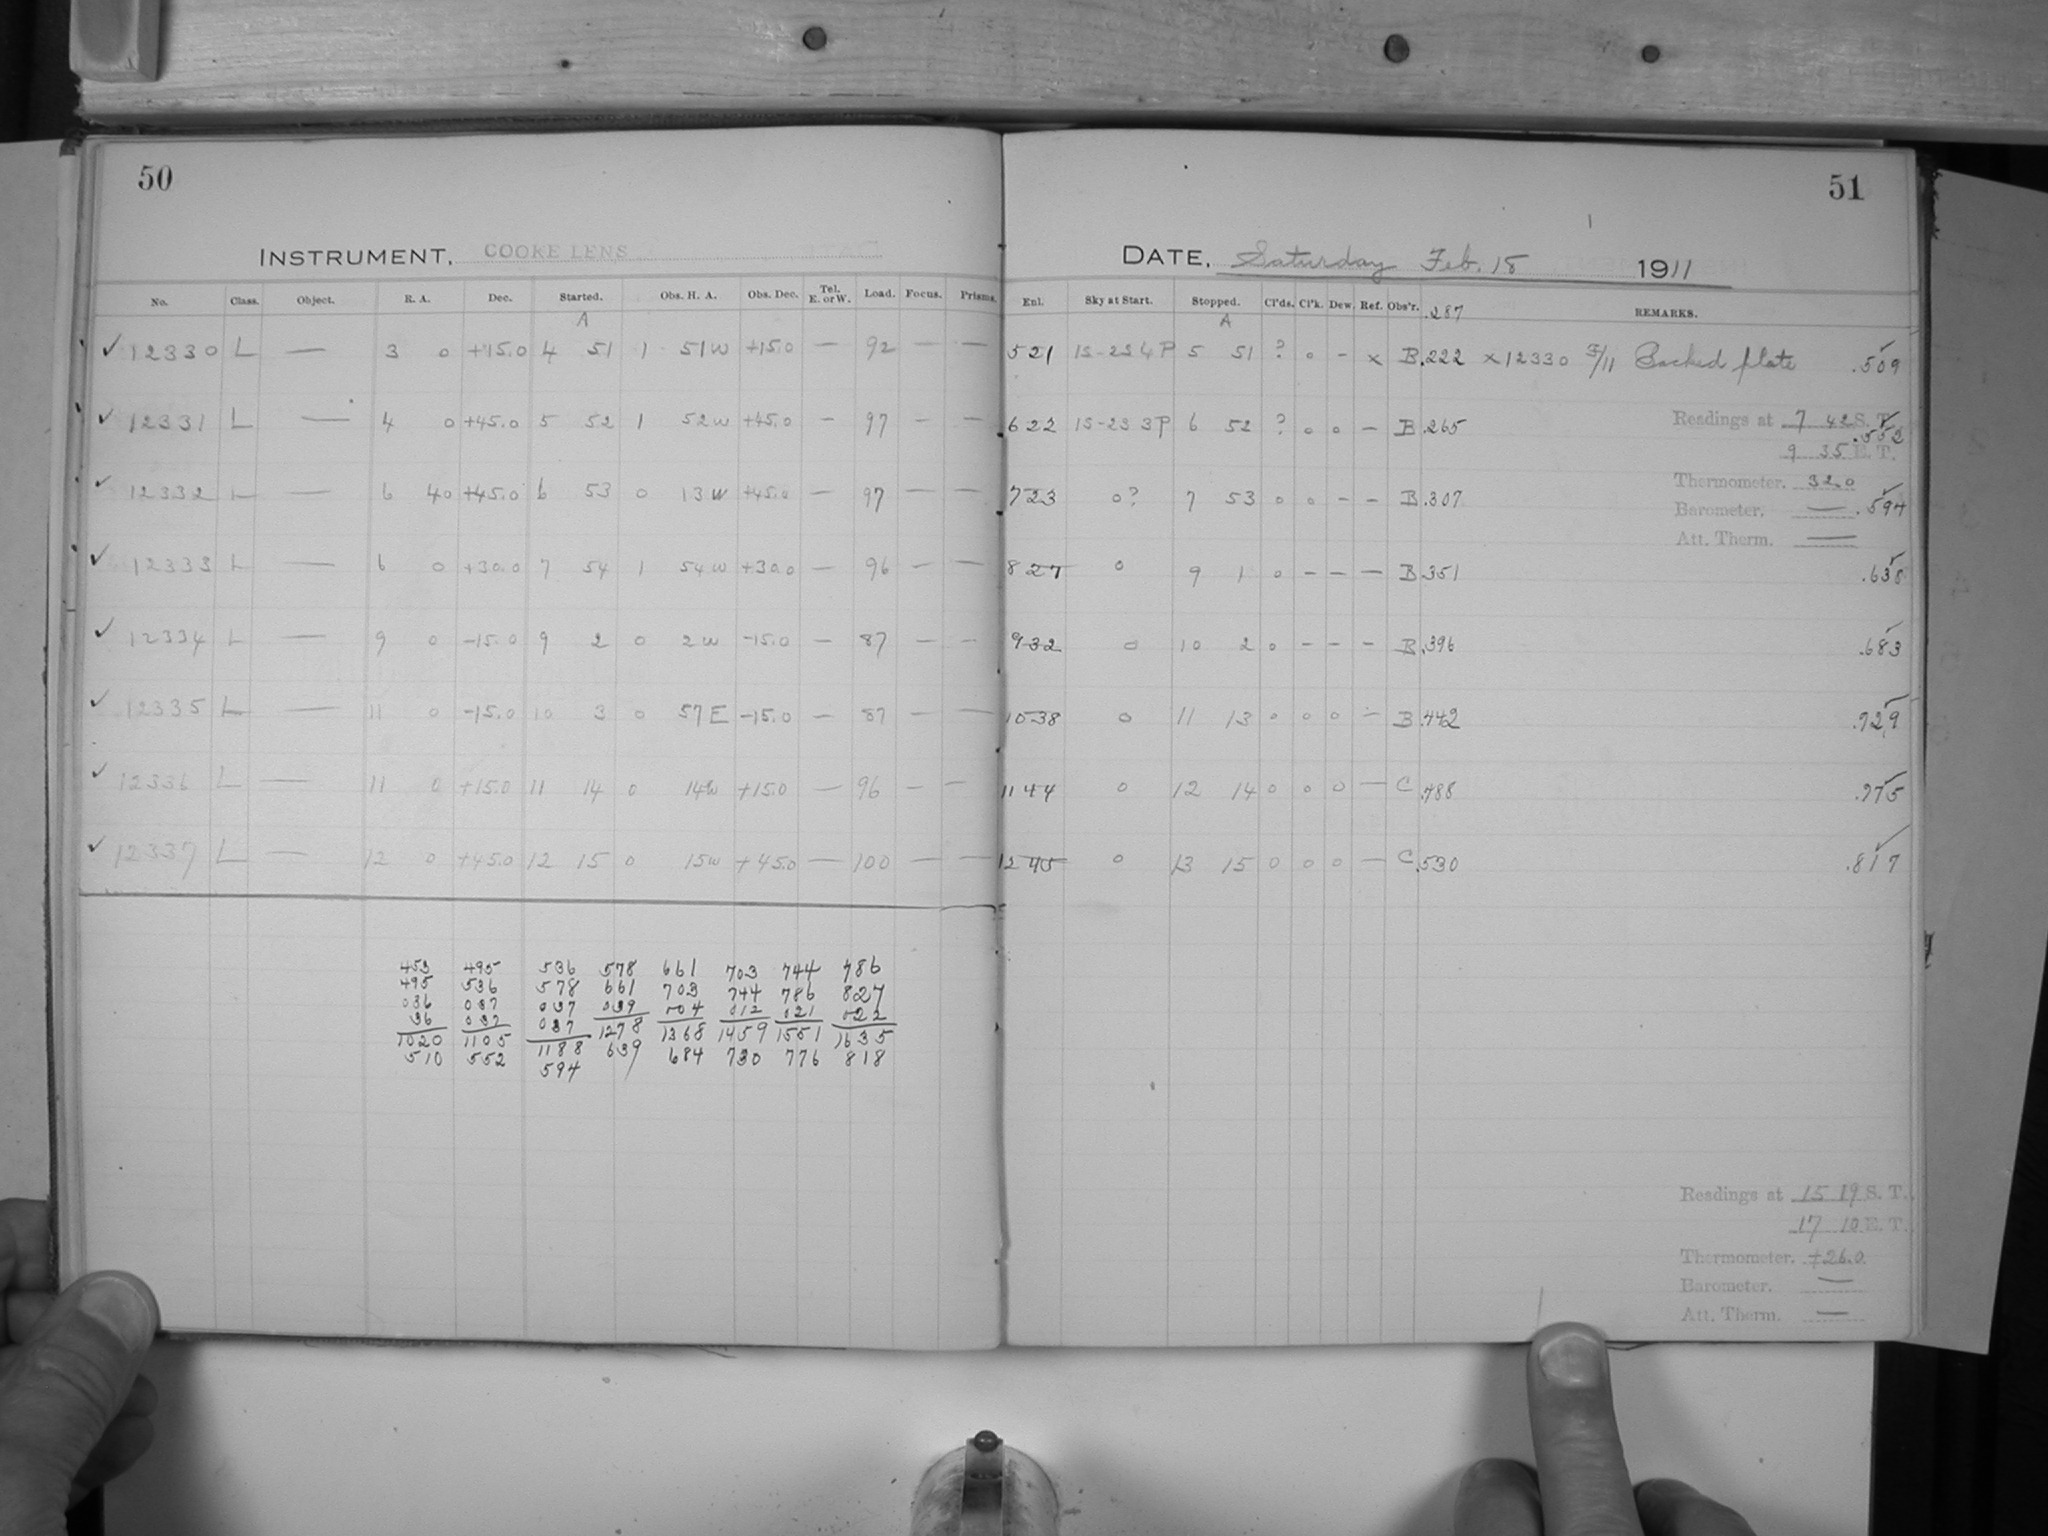 50
INSTRUMENT. COOKE LENS
No. Class. Object. R. A. Dec. Started. Obs. H. A. Obs. Dec. Tel. E. or W. Load. Focus. Prisms.
A
✓ 12330 L — 3 0 +15.0 4 51 1 51W +15.0 — 92 — —
✓ 12331 L — 4 0 +45.0 5 52 1 52W +45.0 — 97 — —
✓ 12332 L — 6 40 +45.0 6 53 0 13W +45.0 — 97 — —
✓ 12333 L — 6 0 +30.0 7 54 1 54W +30.0 — 96 — —
✓ 12334 L — 9 0 -15.0 9 2 0 2W -15.0 — 87 — —
✓ 12335 L — 11 0 -15.0 10 3 0 57E -15.0 — 87 — —
✓ 12336 L — 11 0 +15.0 11 14 0 14W +15.0 — 96 — —
✓ 12337 L — 12 0 +45.0 12 15 0 15W +45.0 — 100 — —
453 495 536 578 661 703 744 786
495 536 578 661 703 744 786 827
036 037 037 039 004 012 021 022
36 037 037 1278 1368 1459 1551 1635
1020 1105 1188 639 684 730 776 818
510 552 594
51
DATE, Saturday Feb. 18 1911
Enl. Sky at Start. Stopped. Cl'ds. Cl'k. Dew. Ref. Obs'r. .287 REMARKS.
A
521 15-234P 5 51 ? 0 - x B .222 x12330 Backed plate .509
622 15-233P 6 52 ? 0 0 - B .265
Readings at 7 42 S. T.
.552
9 35 E. T.
Thermometer. 32.0
723 0? 7 53 0 0 - - B .307 .594
Barometer. —
Att. Therm. —
827 0 9 1 0 - - - B .351 .638
932 0 10 2 0 - - - B .396 .683
1038 0 11 13 0 0 0 - B .442 .729
1144 0 12 14 0 0 0 — C .488 .775
1245 0 13 15 0 0 0 — C .530 .817
Readings at 15 19 S. T.
17 10 E. T.
Thermometer. +26.0
Barometer. —
Att. Therm. —